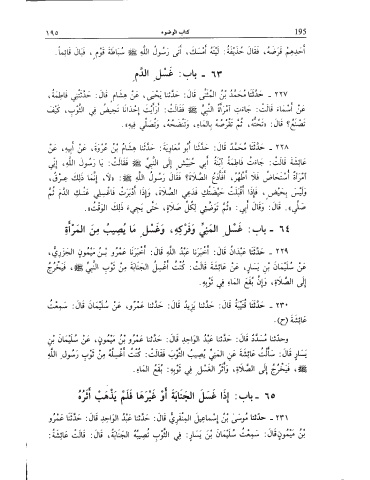 ١٩٥ كتاب الوضوء 195
أَحَدِهِمْ قَرَضَهُ، فَقَالَ حُذَيْفَةُ: لَيْتَهُ أَمْسَكَ، أَتَى رَسُولُ اللَّهِ ﷺ سُبَاطَةَ قَوْمٍ، فَبَالَ قَائِماً.
٦٣ - باب: غَسْلِ الدَّمِ
٢٢٧ - حَدَّثَنَا مُحَمَّدُ بْنُ المُثَنَّى قَالَ: حَدَّثَنَا يَحْيَى، عَنْ هِشَامٍ قَالَ: حَدَّثَتْنِي فَاطِمَةُ،
عَنْ أَسْمَاءَ قَالَتْ: جَاءَتِ امْرَأَةٌ النَّبِيَّ ﷺ فَقَالَتْ: أَرَأَيْتَ إِحْدَانَا تَحِيضُ فِي الثَّوْبِ، كَيْفَ
تَصْنَعُ؟ قَالَ: «تَحُتُّهُ، ثُمَّ تَقْرُصُهُ بِالمَاءِ، وَتَنْضَحُهُ، وَتُصَلِّي فِيهِ».
٢٢٨ - حَدَّثَنَا مُحَمَّدٌ قَالَ: حَدَّثَنَا أَبُو مُعَاوِيَةَ: حَدَّثَنَا هِشَامُ بْنُ عُرْوَةَ، عَنْ أَبِيهِ، عَنْ
عَائِشَةَ قَالَتْ: جَاءَتْ فَاطِمَةُ ابْنَةُ أَبِي حُبَيْشٍ إِلَى النَّبِيِّ ﷺ فَقَالَتْ: يَا رَسُولَ اللَّهِ، إِنِّي
امْرَأَةٌ أُسْتَحَاضُ فَلاَ أَطْهُرُ، أَفَأَدَعُ الصَّلاَةَ؟ فَقَالَ رَسُولُ اللَّهِ ﷺ: «لاَ، إِنَّمَا ذَلِكِ عِرْقٌ،
وَلَيْسَ بِحَيْضٍ، فَإِذَا أَقْبَلَتْ حَيْضَتُكِ فَدَعِي الصَّلاَةَ، وَإِذَا أَدْبَرَتْ فَاغْسِلِي عَنْكِ الدَّمَ ثُمَّ
صَلِّي». قَالَ: وَقَالَ أَبِي: «ثُمَّ تَوَضَّئِي لِكُلِّ صَلاَةٍ، حَتَّى يَجِيءَ ذَلِكَ الوَقْتُ».
٦٤ - باب: غَسْلِ المَنِيِّ وَفَرْكِهِ، وَغَسْلِ مَا يُصِيبُ مِنَ المَرْأَةِ
٢٢٩ - حَدَّثَنَا عَبْدَانُ قَالَ: أَخْبَرَنَا عَبْدُ اللَّهِ قَالَ: أَخْبَرَنَا عَمْرُو بْنُ مَيْمُونٍ الجَزَرِيُّ،
عَنْ سُلَيْمَانَ بْنِ يَسَارٍ، عَنْ عَائِشَةَ قَالَتْ: كُنْتُ أَغْسِلُ الجَنَابَةَ مِنْ ثَوْبِ النَّبِيِّ ﷺ، فَيَخْرُجُ
إِلَى الصَّلاَةِ، وَإِنَّ بُقَعَ المَاءِ فِي ثَوْبِهِ.
٢٣٠ - حَدَّثَنَا قُتَيْبَةُ قَالَ: حَدَّثَنَا يَزِيدُ قَالَ: حَدَّثَنَا عَمْرٌو، عَنْ سُلَيْمَانَ قَالَ: سَمِعْتُ
عَائِشَةَ (ح).
وحدثنا مُسَدَّدٌ قَالَ: حَدَّثَنَا عَبْدُ الوَاحِدِ قَالَ: حَدَّثَنَا عَمْرُو بْنُ مَيْمُونٍ، عَنْ سُلَيْمَانَ بْنِ
يَسَارٍ قَالَ: سَأَلْتُ عَائِشَةَ عَنِ المَنِيِّ يُصِيبُ الثَّوْبَ فَقَالَتْ: كُنْتُ أَغْسِلُهُ مِنْ ثَوْبِ رَسُولِ اللَّهِ
ﷺ، فَيَخْرُجُ إِلَى الصَّلاَةِ، وَأَثَرُ الغَسْلِ فِي ثَوْبِهِ: بُقَعُ المَاءِ.
٦٥ - باب: إِذَا غَسَلَ الجَنَابَةَ أَوْ غَيْرَهَا فَلَمْ يَذْهَبْ أَثَرُهُ
٢٣١ - حَدَّثَنَا مُوسَى بْنُ إِسْمَاعِيلَ المِنْقَرِيُّ قَالَ: حَدَّثَنَا عَبْدُ الوَاحِدِ قَالَ: حَدَّثَنَا عَمْرُو
بْنُ مَيْمُونٍ قَالَ: سَمِعْتُ سُلَيْمَانَ بْنَ يَسَارٍ: فِي الثَّوْبِ تُصِيبُهُ الجَنَابَةُ، قَالَ: قَالَتْ عَائِشَةُ: